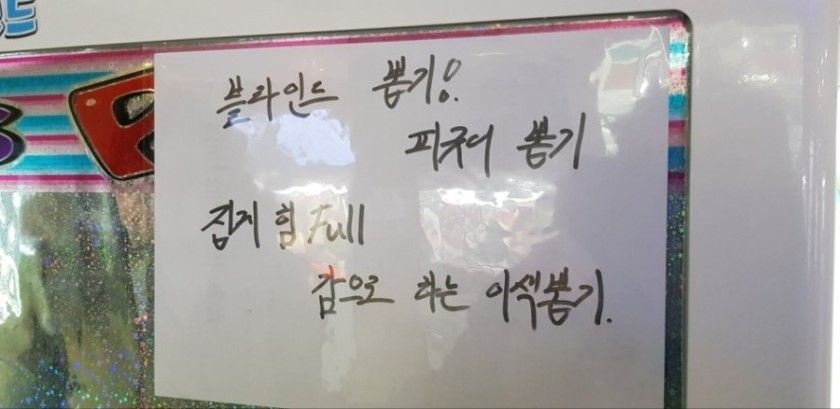 블라인드 뽑기!
피규어 뽑기
집게 힘 Full
감으로 하는 이색뽑기.